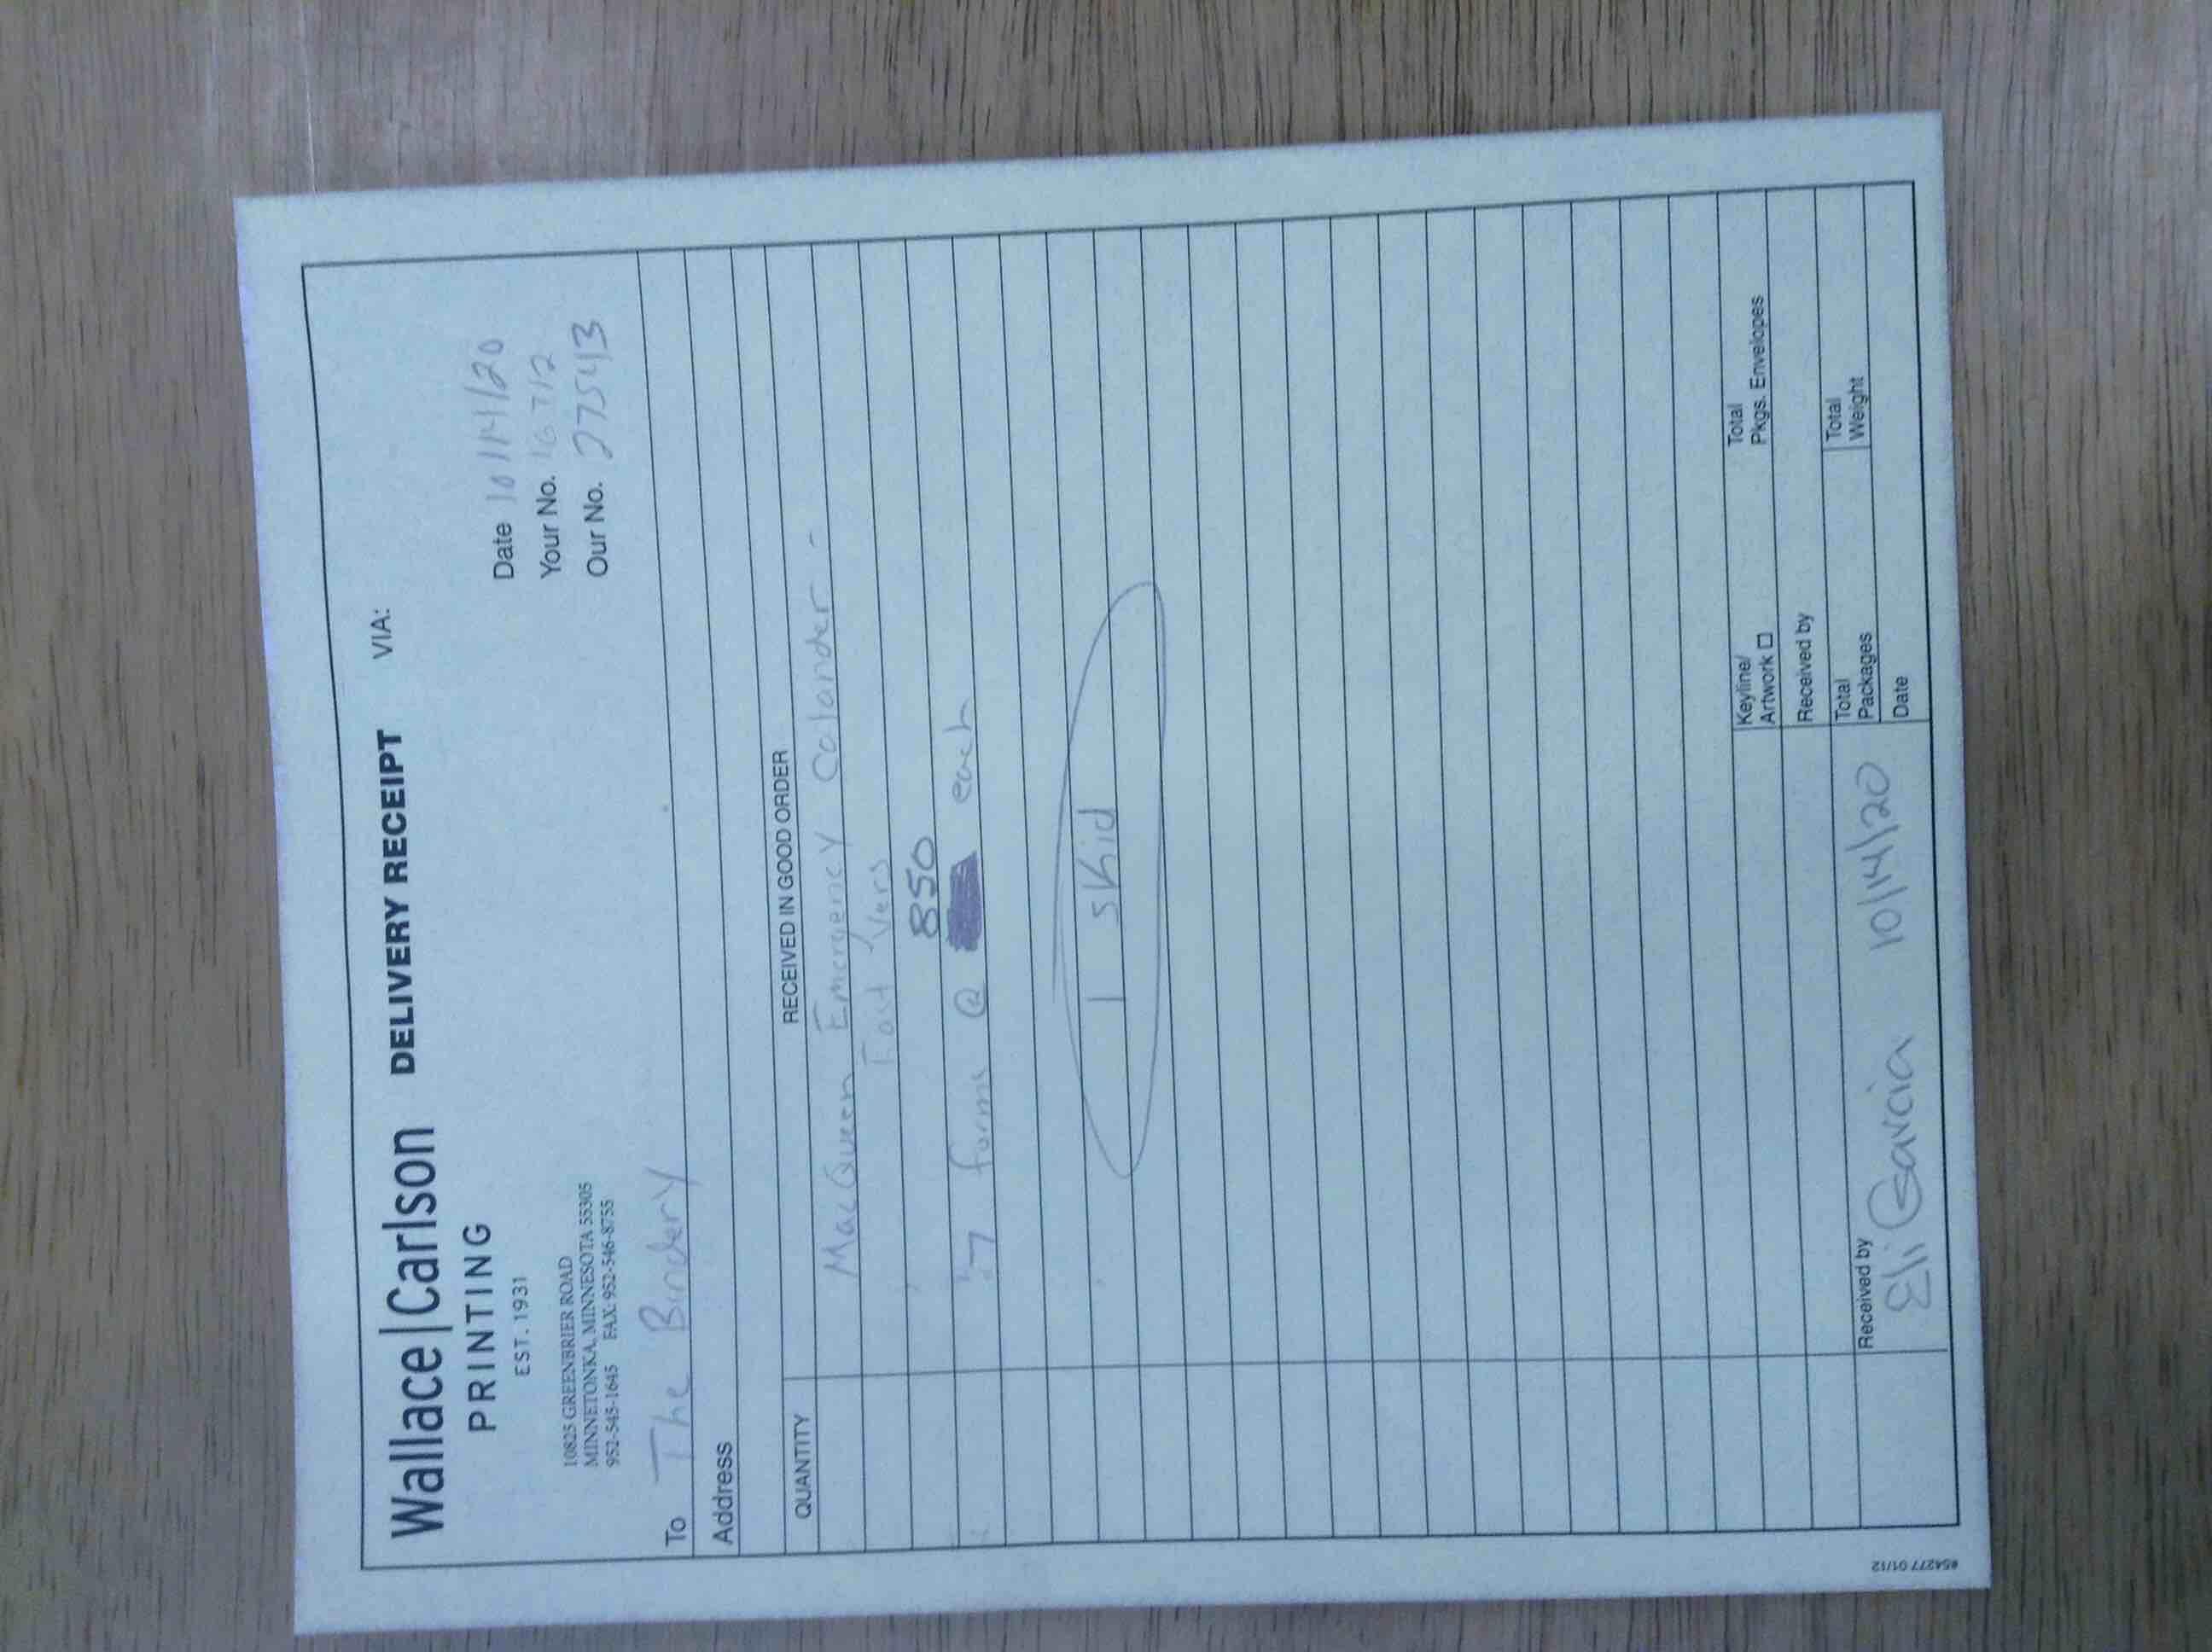 Wallace|Carlson DELIVERY RECEIPT VIA:
PRINTING
EST. 1931
Date 10/14/20
Your No. 16712
Our No. 277543
10825 GREENBRIER ROAD
MINNETONKA, MINNESOTA 55305
952-545-1645 FAX: 952-546-8755
To The Bindery
Address
QUANTITY RECEIVED IN GOOD ORDER
MacQueen Emergency Calander -
Vers
850
7 forms @ each
1 skid
Keyline/
Artwork □
Total
Pkgs. Envelopes
Received by
Received by
Total
Packages
Total
Weight
Eli Garcia 10/14/20
Date
#54277 01/12